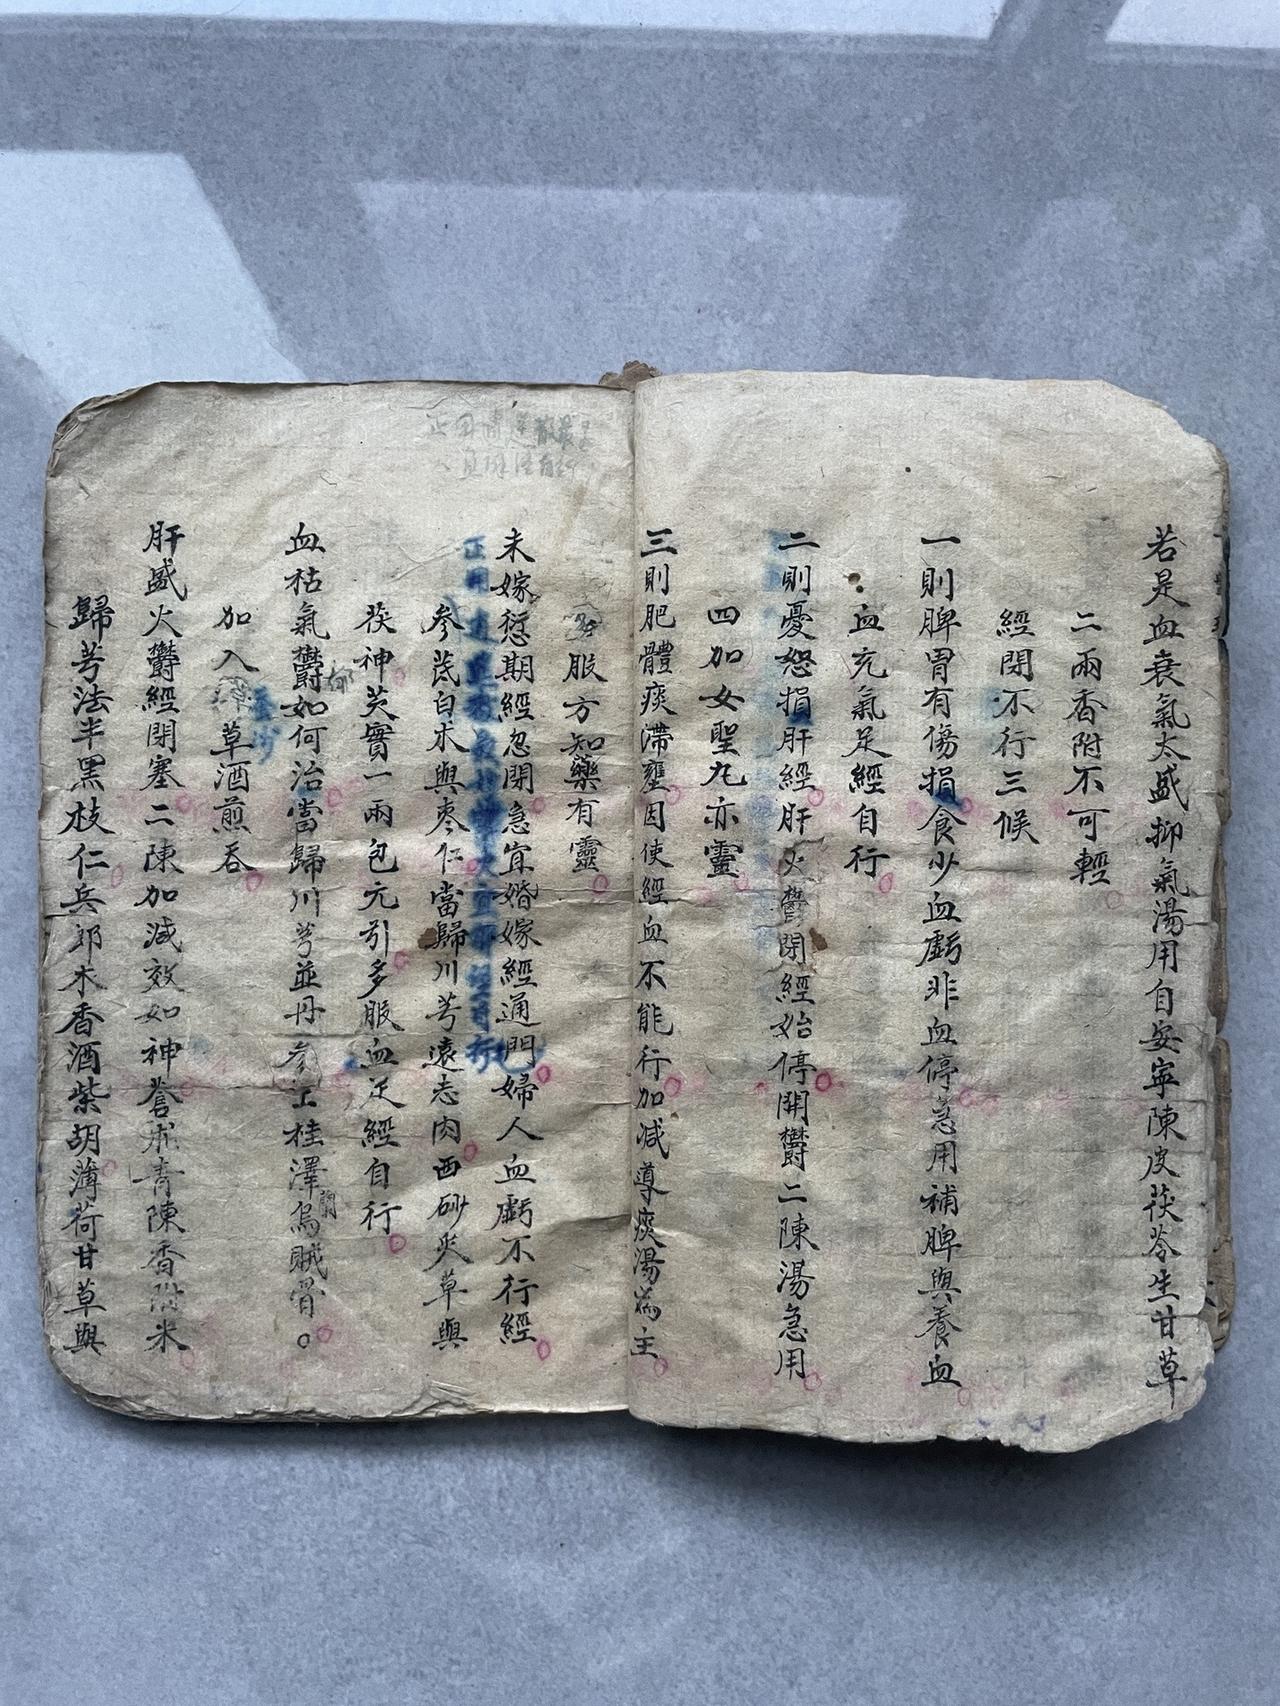 若是血衰氣太盛抑氣湯用自安寧陳皮茯苓生甘草
二兩香附不可輕
經閉不行三候
一則脾胃有傷損食少血虧非血停急用補脾與養血
血充氣足經自行
二則憂怒損肝經肝火鬱閉經始停開鬱二陳湯急用
四加女聖九亦靈
三則肥體痰滯壅因使經血不能行加減導痰湯為主
服方知藥有靈
未嫁愆期經忽閉急宜婚嫁經通門婦人血虧不行經
參茋白朮與枣仁當歸川芎遠志肉西砂炙草與
茯神芡實一兩包元引多服血足經自行
血枯氣鬱如何治當歸川芎並丹參上桂澤烏賊骨。
加入草酒煎吞
肝盛火鬱經閉塞二陳加減效如神蒼朮青陳香附米
歸芎法半黑枝仁兵郎木香酒紫胡薄荷甘草與